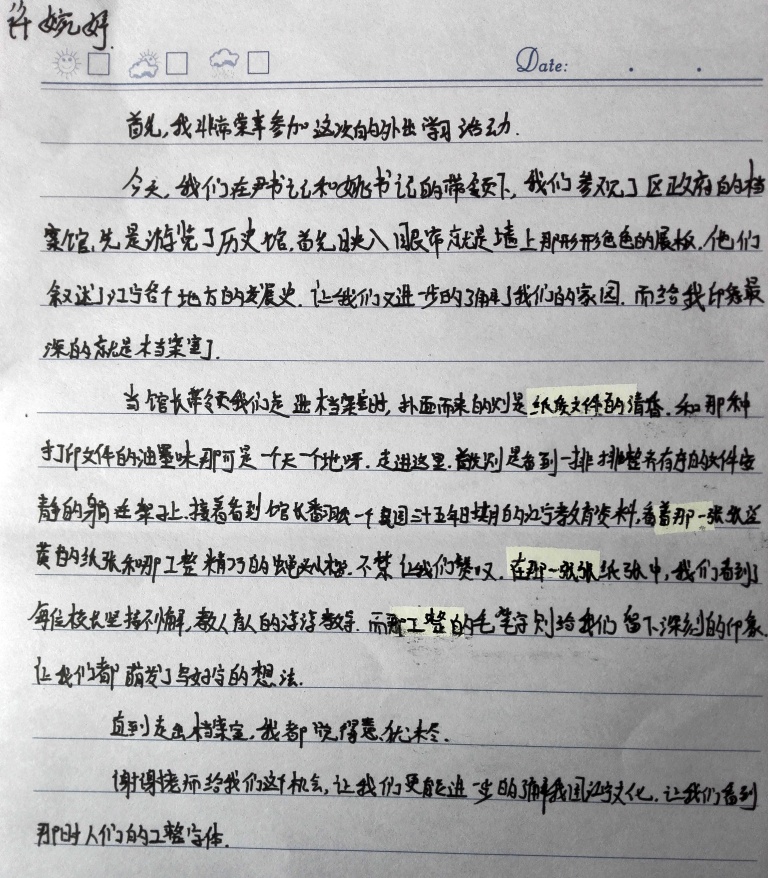 许婉妤
Date:
首先,我非常荣幸参加这次的外出学习活动.
今天,我们在尹书记和姚书记的带领下,我们参观了区政府的档
案馆.先是游览了历史馆,首先映入眼帘就是墙上那形形色色的展板.他们
叙述了江宁各个地方的发展史.让我们又进一步的了解了我们的家园.而给我印象最
深的就是档案室了.
当馆长带领我们走进档案室时,扑面而来的则是纸质文件的清香.和那种
打印文件的油墨味那可是一个天一个地呀.走进这里.首先则是看到一排排整齐有序的文件安
静的躺在架子上.接着看到馆长翻阅一个民国三十五年时期的江宁教育资料,看着那一张张泛
黄的纸张和那工整精巧的蝇头小楷.不禁让我们赞叹.在那一张张纸张中,我们看到了
每位校长坚持不懈,教人育人的谆谆教导.而那工整的毛笔字则给我们留下深刻的印象.
让我们都萌发了写好字的想法.
直到走出档案室,我都觉得意犹未尽.
谢谢老师给我们这个机会,让我们更能进一步的了解我国江宁文化.让我们看到
那时人们的工整字体.